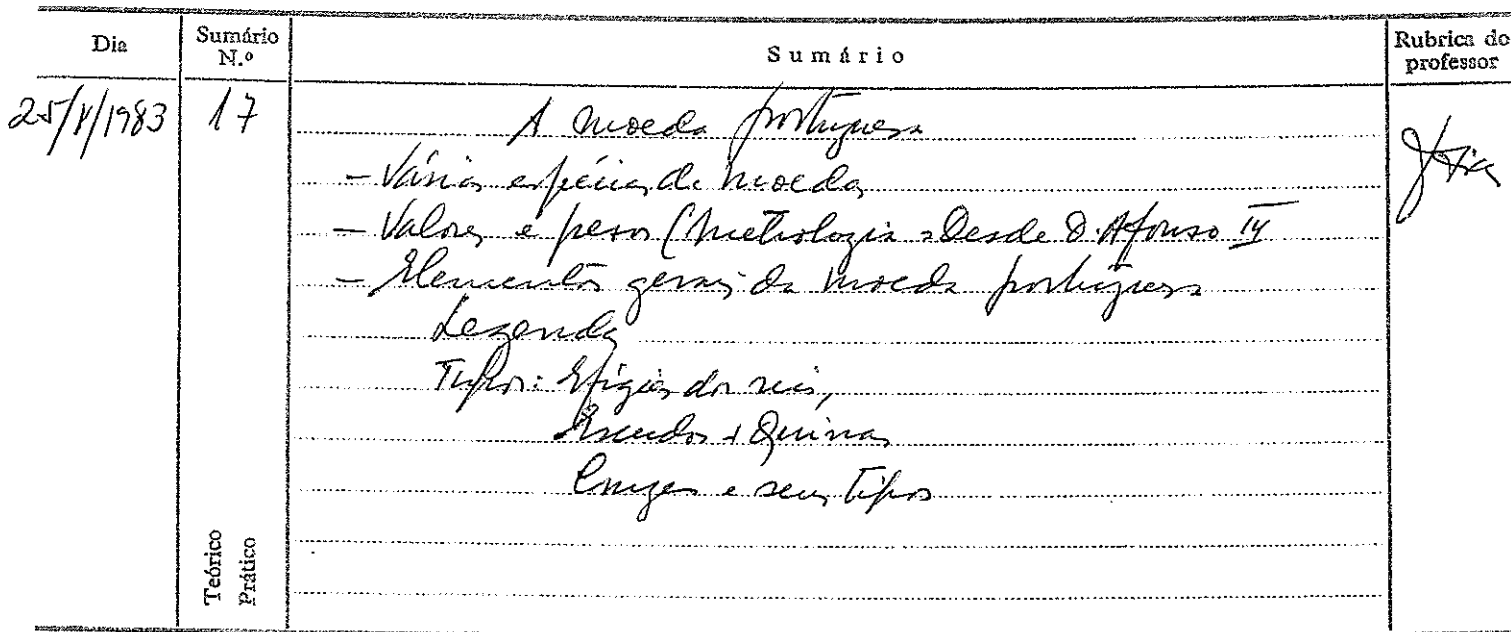 Dia
Sumário N.º
Sumário
Rubrica do professor
25/V/1983
17
A moeda portuguesa
- Várias espécies de moedas
- Valores e pesos (Metrologia - Desde D. Afonso IV
- Elementos gerais da moeda portuguesa
Legendas
Tipos: Efígies dos reis,
Escudos e Quinas
Cruzes e seus tipos
Teórico
Prático